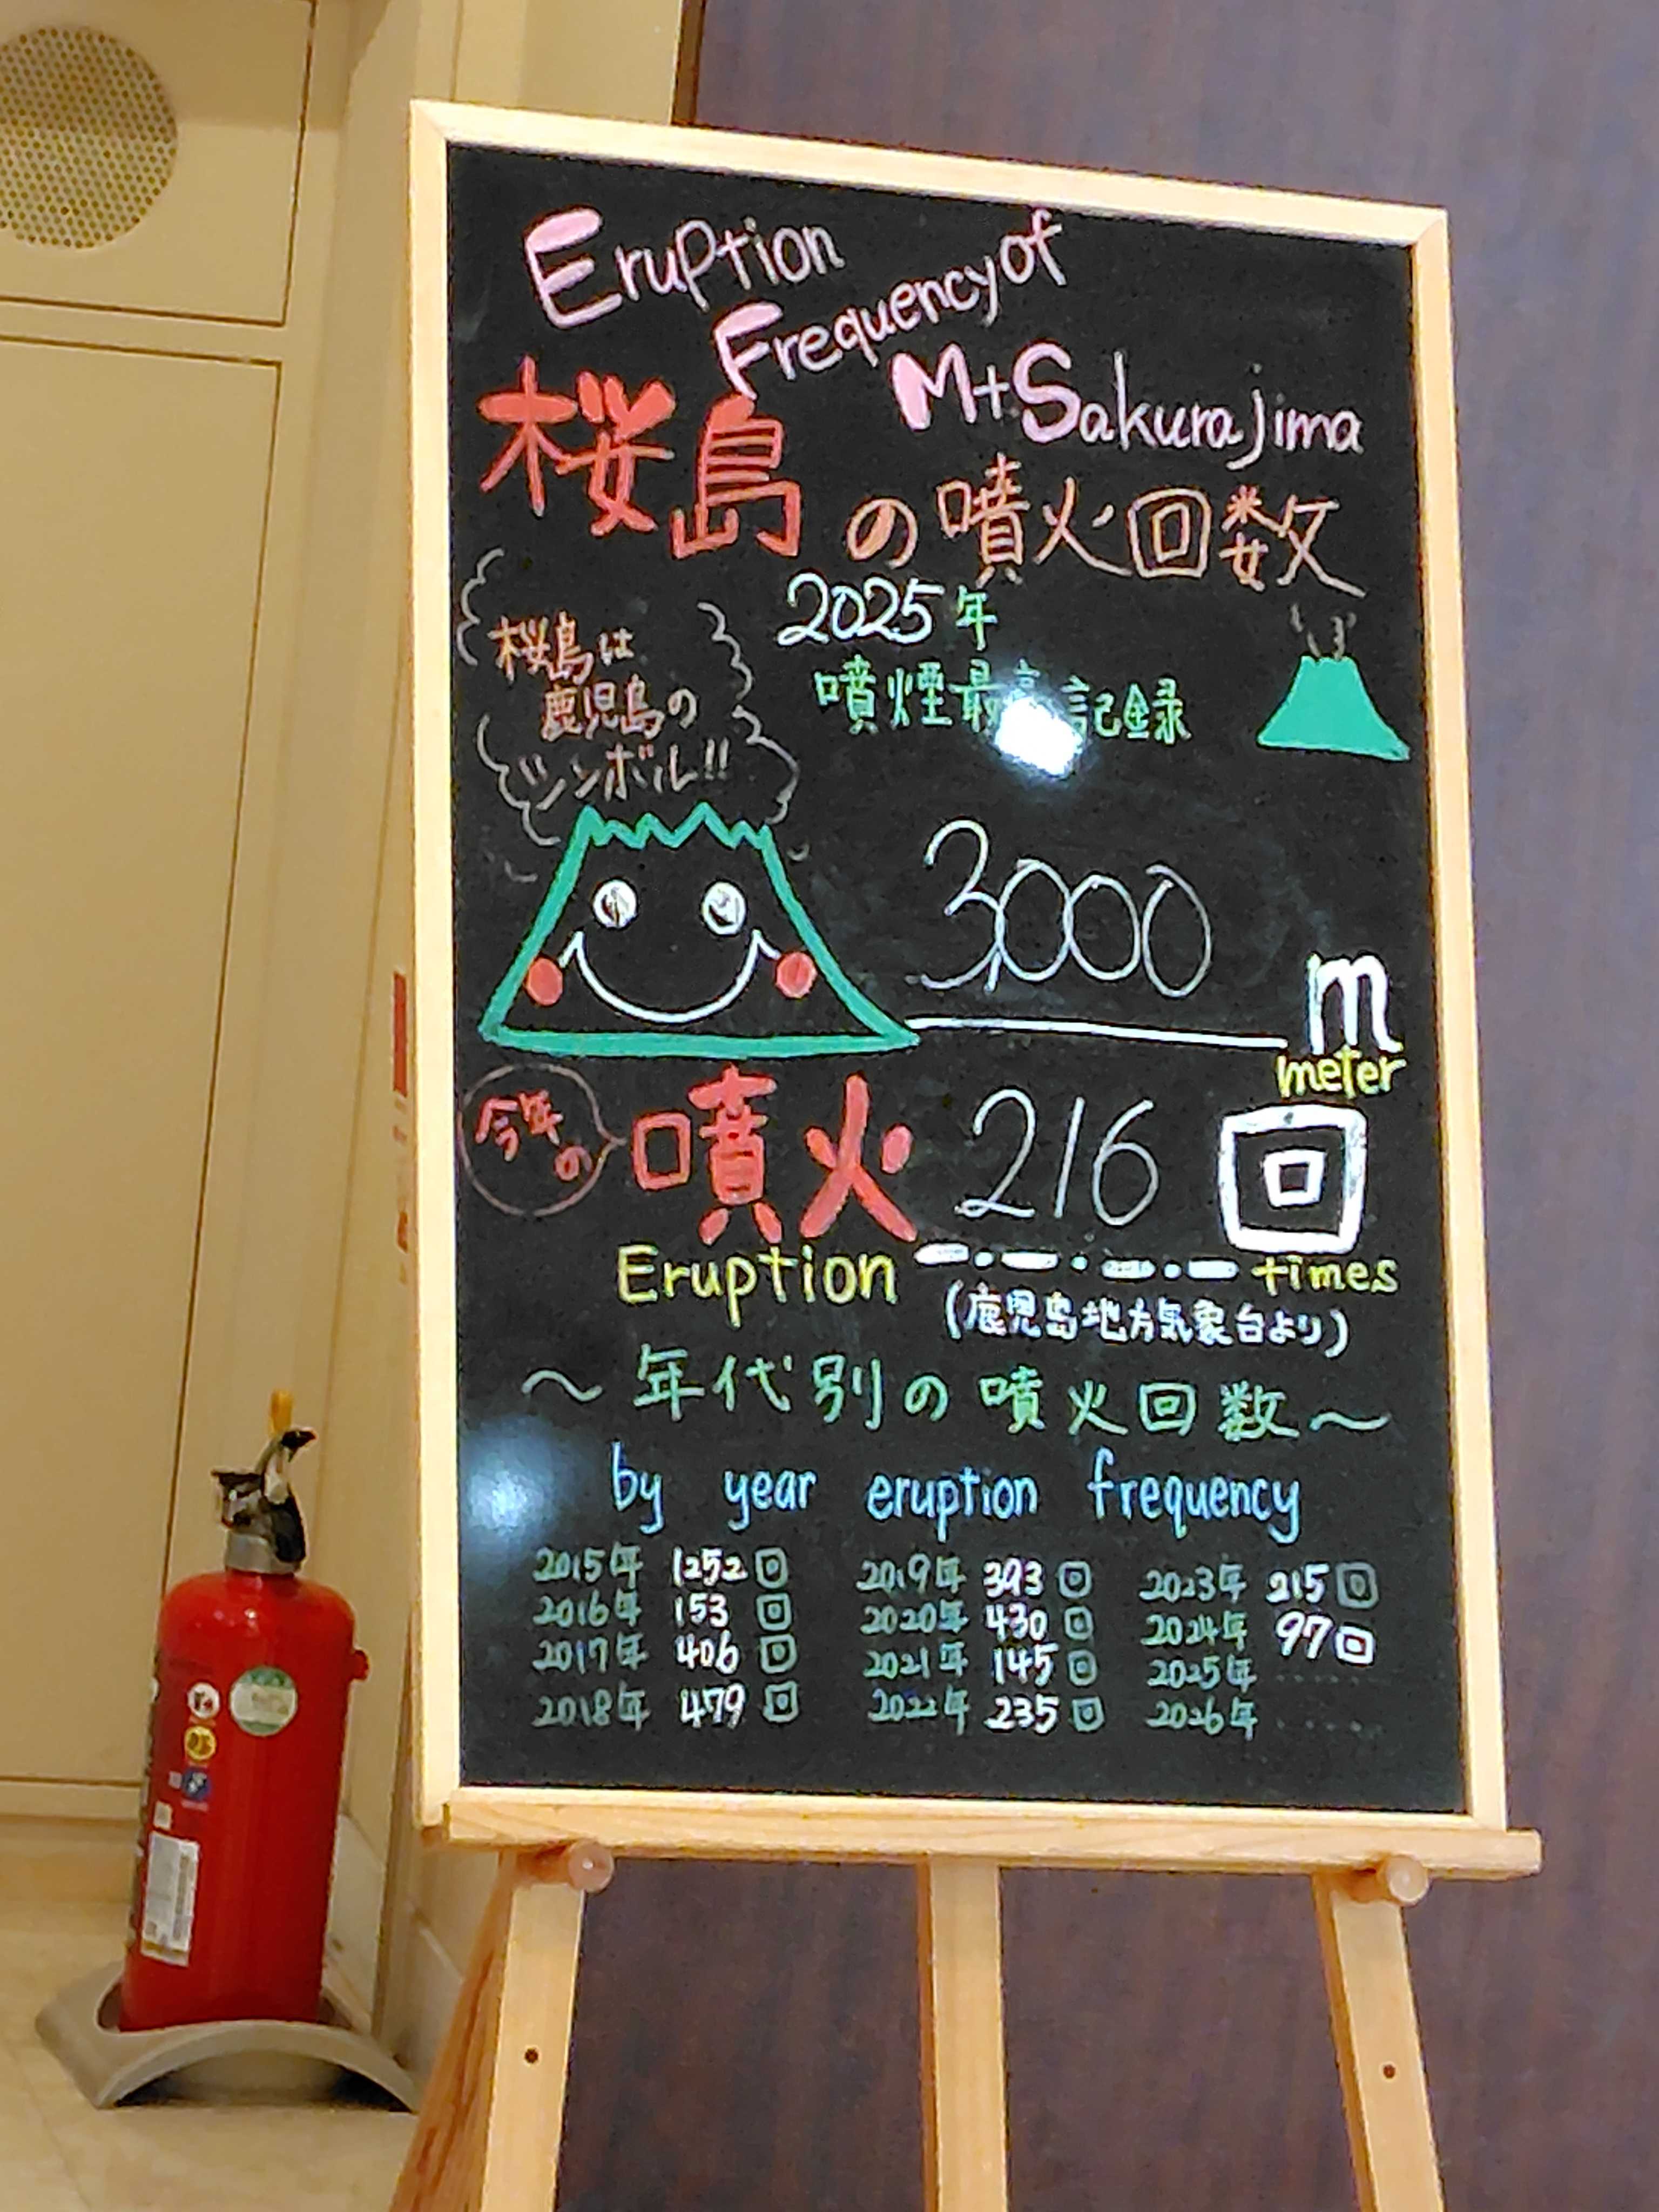 Eruption
Frequency of
Mt Sakurajima
桜島の噴火回数
2025年
噴煙最高記録
桜島は
鹿児島の
シンボル!!
3,000 m
meter
今年の
噴火 216 回
Eruption times
(鹿児島地方気象台より)
～年代別の噴火回数～
by year eruption frequency
2015年 1252回 2019年 393回 2023年 215回
2016年 153回 2020年 430回 2024年 97回
2017年 406回 2021年 145回 2025年 ......
2018年 479回 2022年 235回 2026年 ......